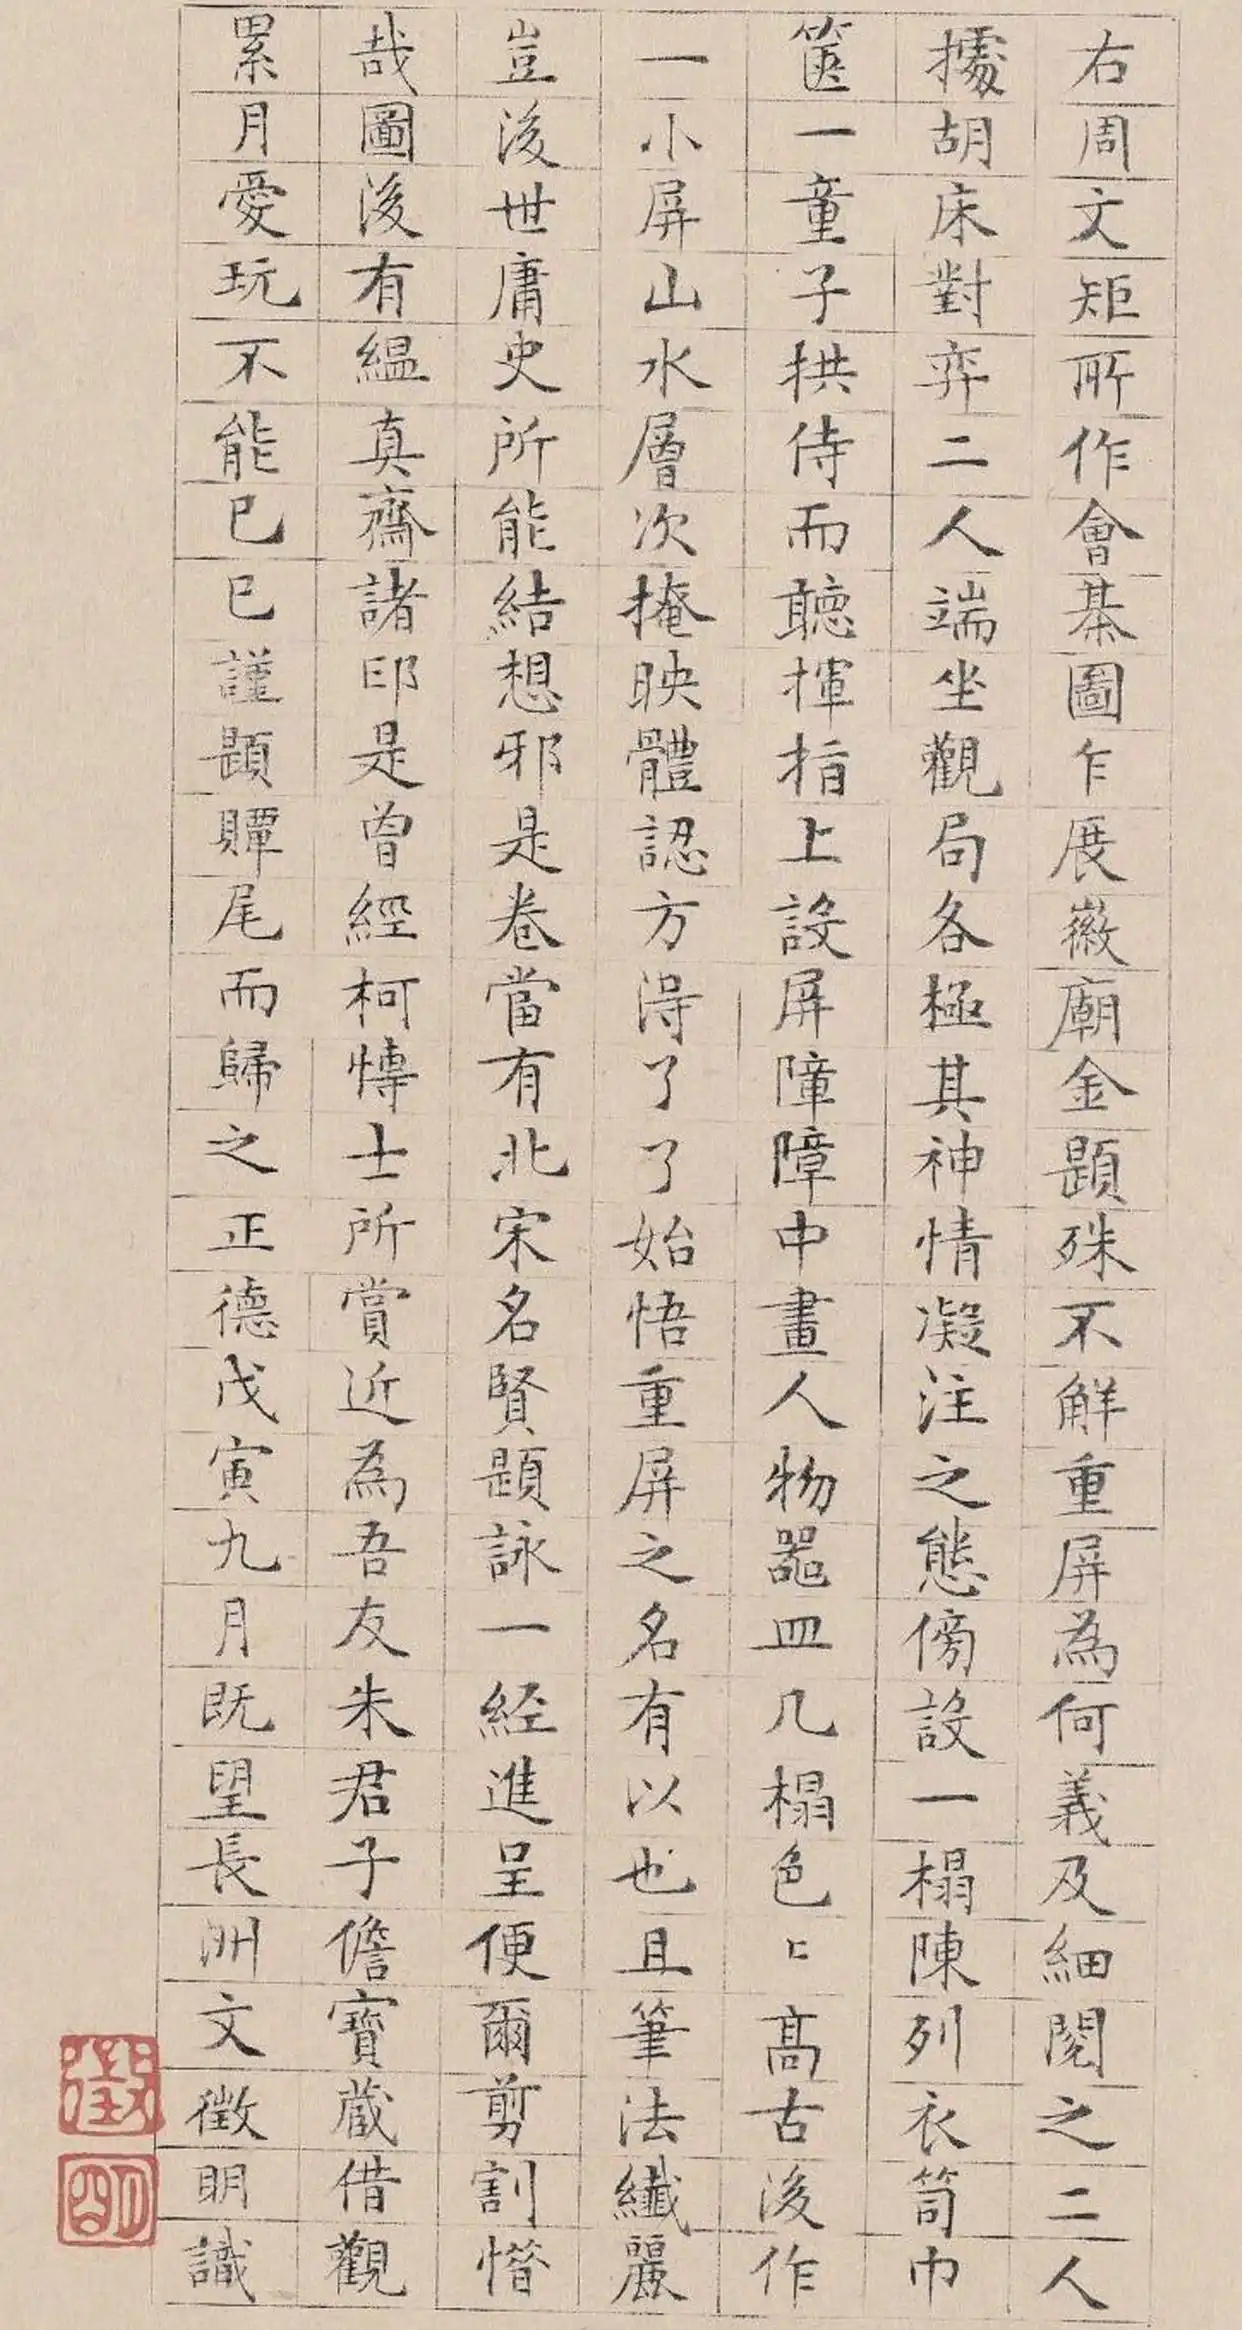 右周文矩所作會棊圖乍展徽廟金題殊不解重屏為何義及細閱之二人
據胡床對弈二人端坐觀局各極其神情凝注之態傍設一榻陳列衣笥巾
篋一童子拱侍而聽揮指上設屏障障中畫人物器皿几榻色〻高古後作
一小屏山水層次掩映體認方得了了始悟重屏之名有以也且筆法纖麗
豈後世庸史所能結想邪是卷當有北宋名賢題詠一经進呈便爾剪割惜
哉圖後有緼真齋諸印是曾經柯博士所賞近為吾友朱君子儋寶蔵借觀
累月愛玩不能已已謹題贉尾而歸之正德戊寅九月既望長洲文徵明識
徵
明